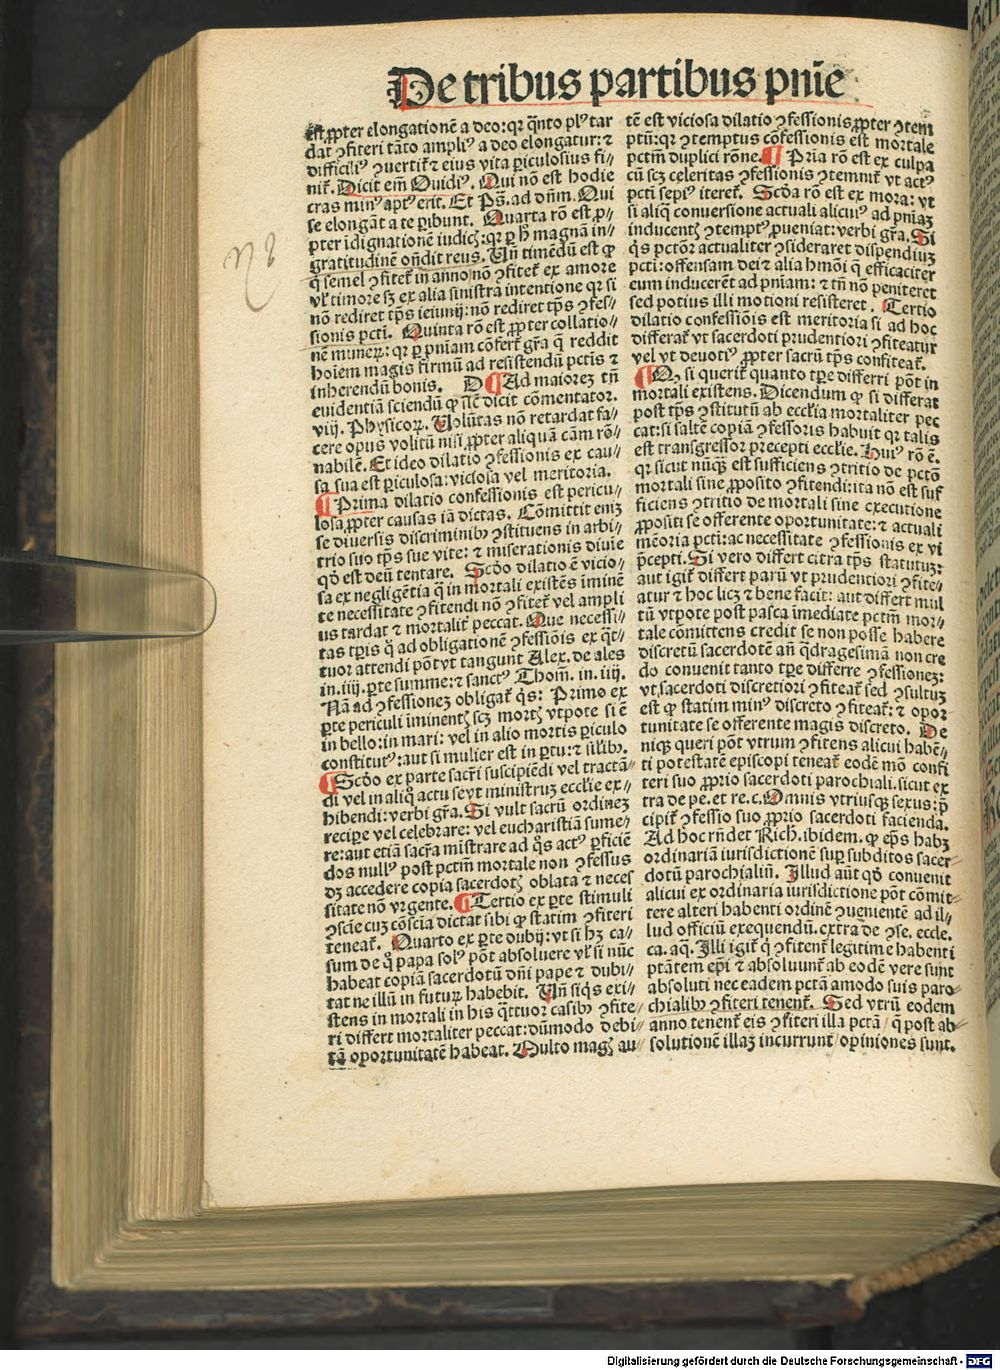 De tribus partibus pnīe
est ꝓpter elongationē a deo: qꝛ q̄nto plꝰ tar
dat ꝯfiteri tāto ampliꝰ a deo elongatur: ⁊
difficiliꝰ ꝯuertit̄ ⁊ eius vita ꝑiculosius fi⸗
nit̄. Dicit em̄ Ouidiꝰ. Qui nō est hodie
cras minꝰ aptꝰ erit. Et Ps̄. ad dn̄m. Qui
se elongāt a te ꝑibunt. Quarta rō est ꝓ⸗
pter īdignationē iudicꝭ: qꝛ ꝑ h̄ magnā in⸗
gratitudinē on̄dit reus. Un̄ timēdū est ꝙ
q̄ semel ꝯfitet̄ in anno nō ꝯfitet̄ ex amore
vl̓ timore sꝫ ex alia sinistra intentione qꝛ si
nō rediret tp̄s ieiunij: nō rediret tp̄s ꝯfes⸗
sionis pcti. Quinta rō est ꝓpter collatio⸗
nē muneꝝ: qꝛ ꝑ pniam cōfert̄ gr̄a q̄ reddit
hoīem magis firmū ad resistendū pctis ⁊
inherendū bonis. D ¶ Ad maiorez tn̄
euidentiā sciendū ꝙ sic̄ dicit cōmentator.
viij. Physicoꝝ. Volūtas nō retardat fa⸗
cere opus volitū nisi ꝓpter aliquā cām rō⸗
nabilē. Et ideo dilatio ꝯfessionis ex cau⸗
sa sua est ꝑiculosa: viciosa vel meritoria.
¶ Prima dilatio confessionis est pericu⸗
losa ꝓpter causas iā dictas. Cōmittit eniz
se diuersis discriminibꝰ ꝯstituens in arbi⸗
trio suo tp̄s sue vite: ⁊ miserationis diuīe
qd̓ est deū tentare. Scd̓o dilatio ē vicio⸗
sa ex negligētia q̄ in mortali existēs īminē
te necessitate ꝯfitendi nō ꝯfitet̄ vel ampli
us tardat ⁊ mortalit̄ peccat. Que necessi⸗
tas tꝑis q̄ ad obligationē ꝯfessiōis ex q̄t⸗
tuor attendi pōt vt tangunt Alex. de ales
in .iiij. ꝑte summe: ⁊ sanctꝰ Thom̄. in. iiij.
Nā ad ꝯfessionez obligat̄ q̄s: Primo ex
ꝑte periculi iminentꝭ scꝫ mortꝭ vtpote si ē
in bello: in mari: vel in alio mortis piculo
constitutꝰ: aut si mulier est in ꝑtu: ⁊ sil̓ibꝰ.
¶ Scd̓o ex parte sacr̄i suscipiēdi vel tractā⸗
di vel in aliq̊ actu seyt ministruz ecclīe ex⸗
hibendi: verbi gr̄a. Si vult sacrū ordinez
recipe vel celebrare: vel eucharistiā sume⸗
re: aut etiā sacr̄a mistrare ad q̊s actꝰ ꝑficiē
dos nullꝰ post pctm̄ mortale non ꝯfessus
dꝫ accedere copia sacerdotꝭ oblata ⁊ neces
sitate nō vrgente. ¶ Tertio ex ꝑte stimuli
ꝯscīe cuꝫ cōscīa dictat sibi ꝙ statim ꝯfiteri
teneat̄. Quarto ex ꝑte dubij: vt si hꝫ ca⸗
sum de q̊ papa solꝰ pōt absoluere vl̓ si nūc
habeat copiā sacerdotū dn̄i pape ⁊ dubi⸗
tat ne illū in futuꝝ habebit. Un̄ siq̄s exi⸗
stens in mortali in his q̄ttuor casibꝰ ꝯfite⸗
ri differt mortaliter peccat: dūmodo debi⸗
tā oportunitatē habeat. Multo magꝭ au⸗
tē est viciosa dilatio ꝯfessionis ꝓpter ꝯtem
ptū: qꝛ ꝯtemptus cōfessionis est mortale
pctm̄ duplici rōne. ¶ Pria rō est ex culpa
cū scꝫ celeritas ꝯfessionis ꝯtemnit̄ vt actꝰ
pcti sepiꝰ iteret̄. Scd̓a rō est ex mora: vt
si aliq̄ conuersione actuali alicuiꝰ ad pniaꝫ
inducentꝭ ꝯtemptꝰ ꝓueniat: verbi gr̄a. Si
q̄s pctōr actualiter ꝯsideraret dispendiuꝫ
pcti: offensam dei ⁊ alia hmōi q̄ efficaciter
eum inducerēt ad pniam: ⁊ tn̄ nō peniteret
sed potius illi motioni resisteret. Tertio
dilatio confessiōis est meritoria si ad hoc
differat̄ vt sacerdoti prudentiori ꝯfiteatur
vel vt deuotiꝰ ꝓpter sacrū tp̄s confiteat̄.
¶ Qꝫ si querit̄ quanto tꝑe differri pōt in
mortali existens. Dicendum ꝙ si differat
post tp̄s ꝯstitutū ab ecclīa mortaliter pec
cat: si saltē copiā ꝯfessoris habuit qꝛ talis
est transgressor precepti ecclīe. Huiꝰ rō ē.
qꝛ sicut nūq̄ꝫ est sufficiens ꝯtritio de pctō
mortali sine ꝓposito ꝯfitendi: ita nō est suf
ficiens ꝯtritio de mortali sine executione
ꝓpositi se offerente oportunitate: ⁊ actuali
mēoria pcti: ac necessitate ꝯfessionis ex vi
p̄cepti. Si vero differt citra tp̄s statutuz:
aut igit̄ differt parū vt prudentiori ꝯfite⸗
atur ⁊ hoc licꝫ ⁊ bene facit: aut differt mul
tū vtpote post pasca īmediate pctm̄ mor⸗
tale cōmittens credit se non posse habere
discretū sacerdotē an̄ q̄dragesimā non cre
do conuenit tanto tꝑe differre ꝯfessionez:
vt sacerdoti discretiori ꝯfiteat̄ sed ꝯsultuꝫ
est ꝙ statim minꝰ discreto ꝯfiteat̄: ⁊ opor
tunitate se offerente magis discreto. De
niqꝫ queri pōt vtrum ꝯfitens alicui habē⸗
ti potestatē episcopi teneat̄ eodē mō confi
teri suo ꝓprio sacerdoti parochiali. sicut ex
tra de pe. et re. c. Omnis vtriusqꝫ sexus: p̄
cipit̄ ꝯfessio suo ꝓprio sacerdoti facienda.
Ad hoc rn̄det Rich. ibidem. ꝙ ep̄s habꝫ
ordinariā iurisdictionē suꝑ subditos sacer⸗
dotū parochialiū. Illud aūt qd̓ conuenit
alicui ex ordinaria iurisdictione pōt cōmit⸗
tere alteri habenti ordinē ꝯuenientē ad il⸗
lud officiū exequendū. extra de ꝯse. eccle.
ca. aq̄. Illi igit̄ q̄ ꝯfitent̄ legitime habenti
ptātem ep̄i ⁊ absoluunt̄ ab eodē vere sunt
absoluti nec eadem pctā amodo suis paro⸗
chialibꝰ ꝯfiteri tenent̄. Sed vtrū eodem
anno tenent̄ eis ꝯfiteri illa pctā / q̄ post ab⸗
solutionē illaꝫ incurrunt / opiniones sunt.
Digitalisierung gefördert durch die Deutsche Forschungsgemeinschaft - DFG